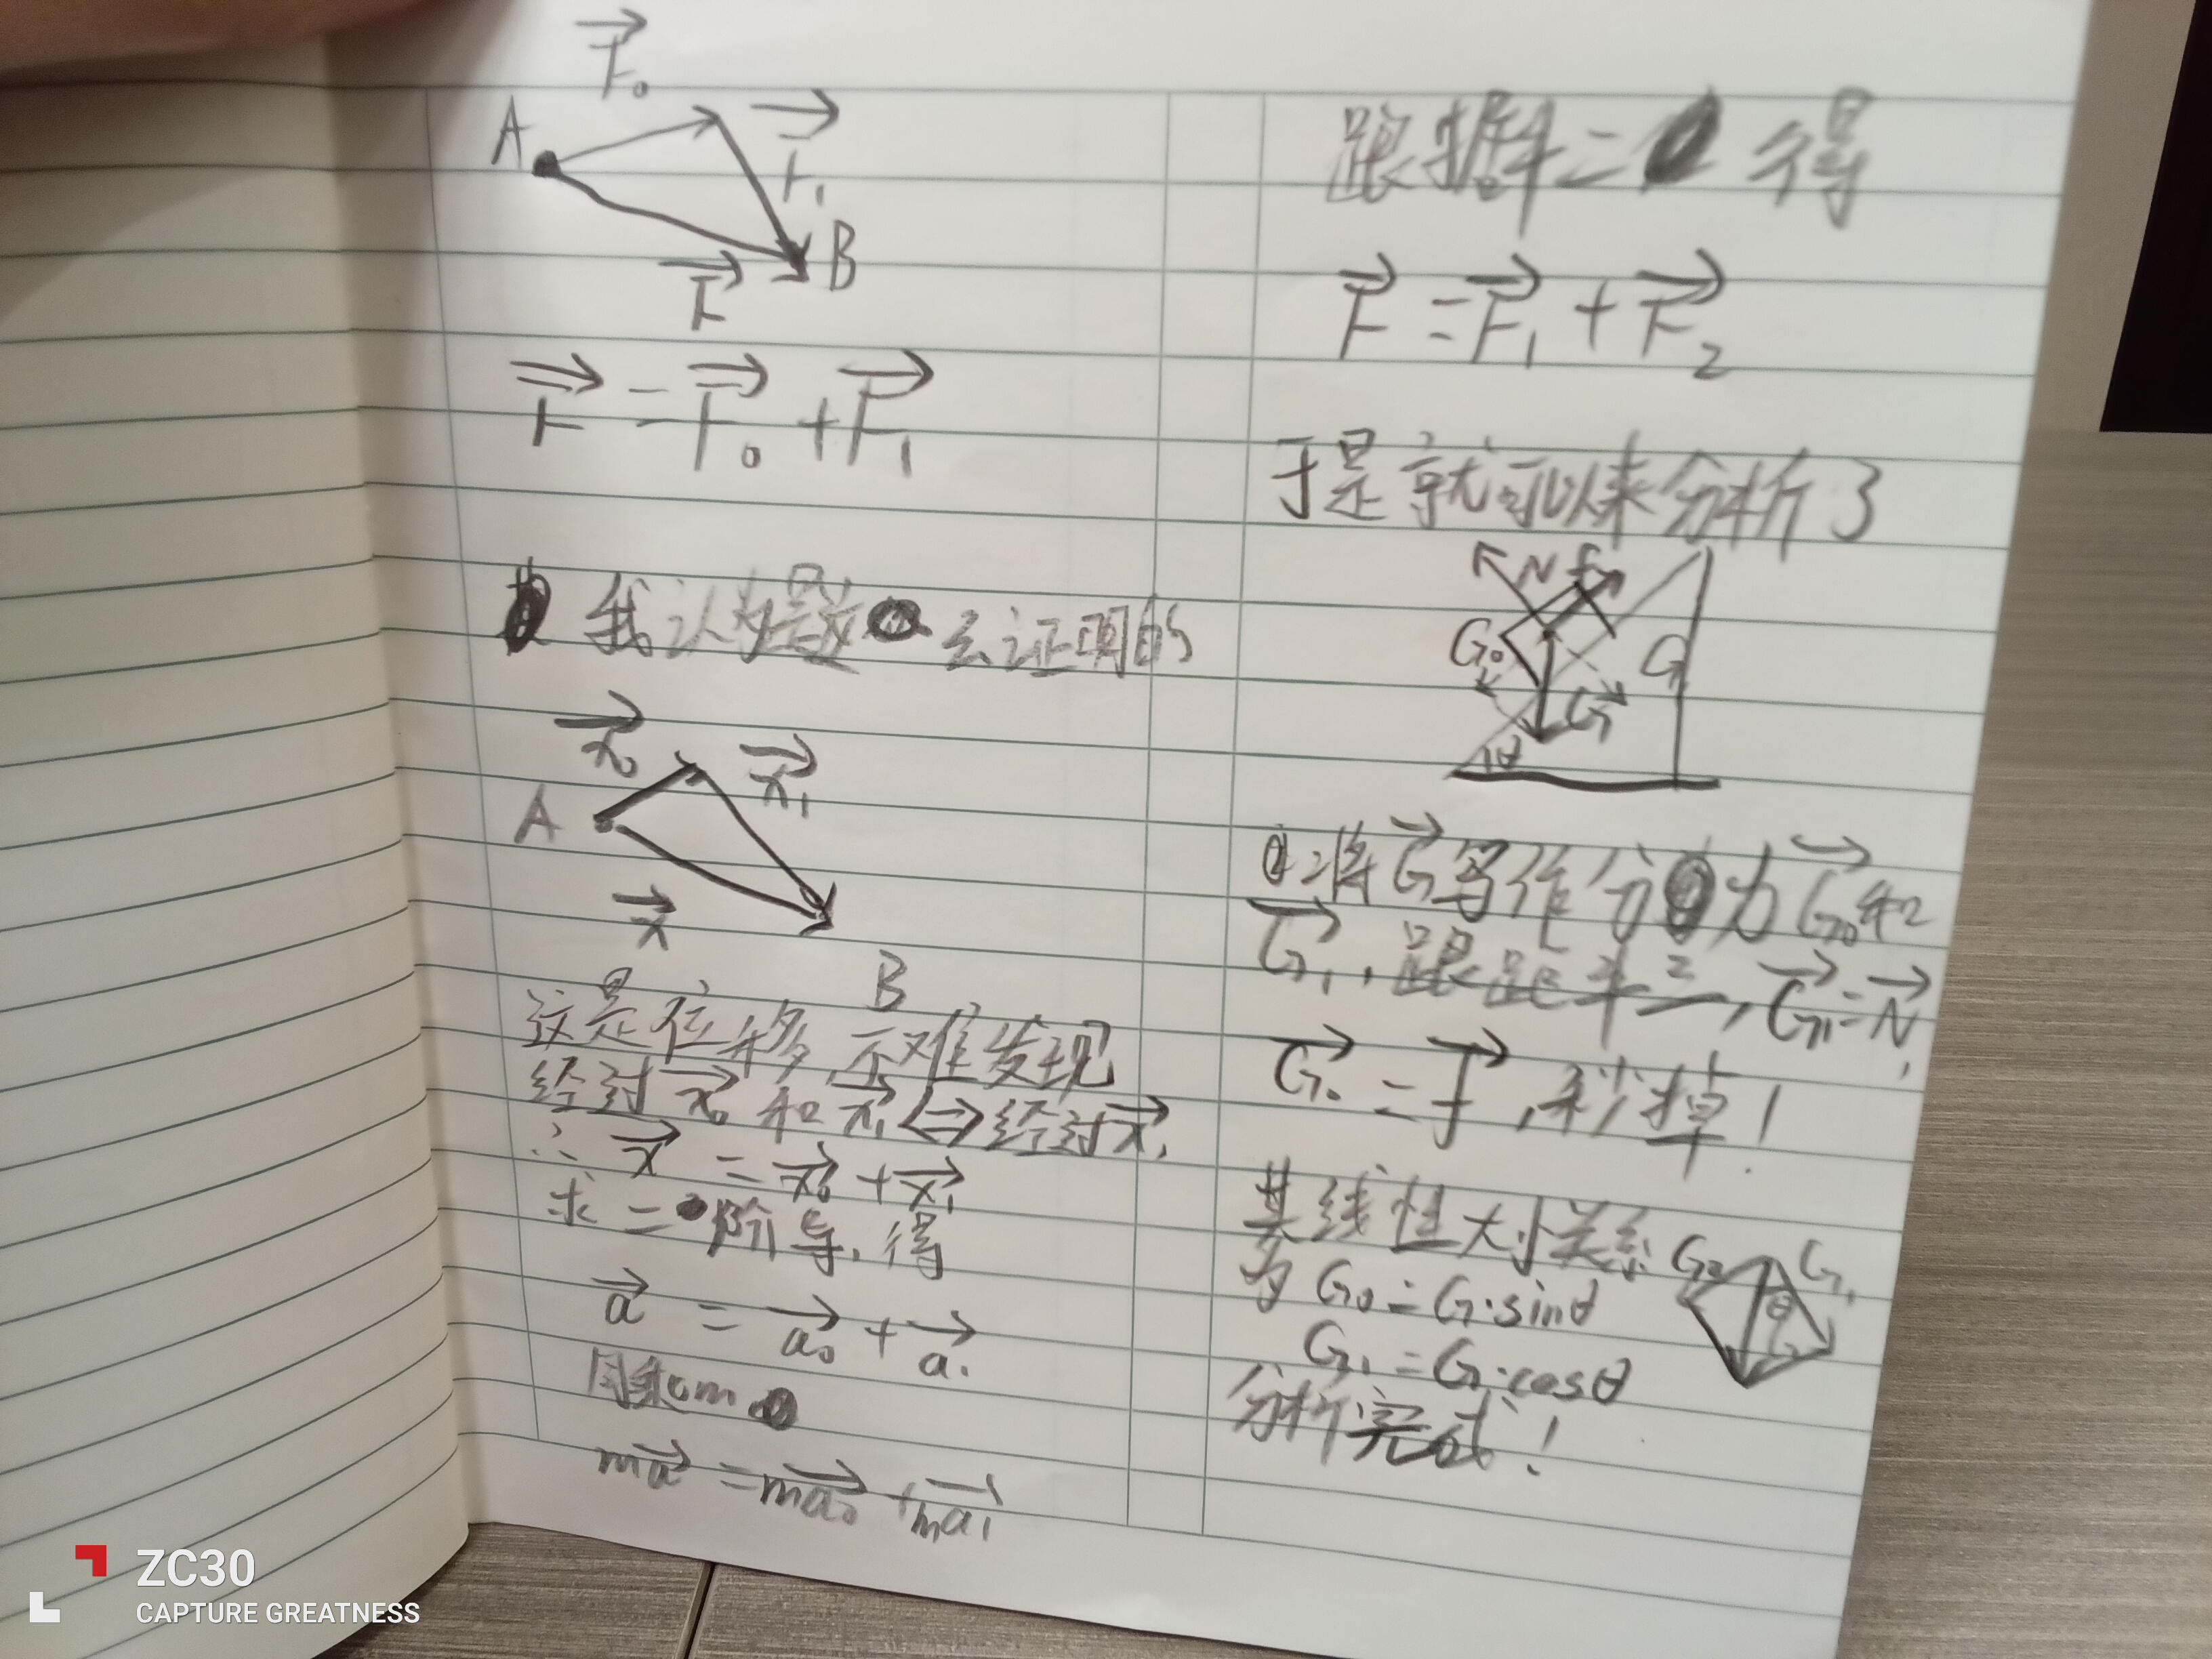 F⃗₀
A
F⃗₁
B
F⃗
F⃗ = F⃗₀ + F⃗₁
我认为是这么证明的
x⃗₀
x⃗₁
A
x⃗
B
这是位移,不难发现
经过x⃗₀和x⃗₁⇔经过x⃗,
∴ x⃗ = x⃗₀ + x⃗₁
求二阶导,得
a⃗ = a⃗₀ + a⃗₁
同乘m
ma⃗ = ma⃗₀ + ma⃗₁
跟据牛二得
F⃗ = F⃗₁ + F⃗₂
于是就可以来分析了
N f
G₀ G₁
G
θ
将G⃗写作分为G⃗₀和
G⃗₁,跟距牛三,G⃗₁=N⃗,
G⃗₀ = f⃗,秒掉!
其线性大小关系
为 G₀ = G·sinθ
G₁ = G·cosθ
分析完成!
G₀ G₁
θ
G
ZC30
CAPTURE GREATNESS